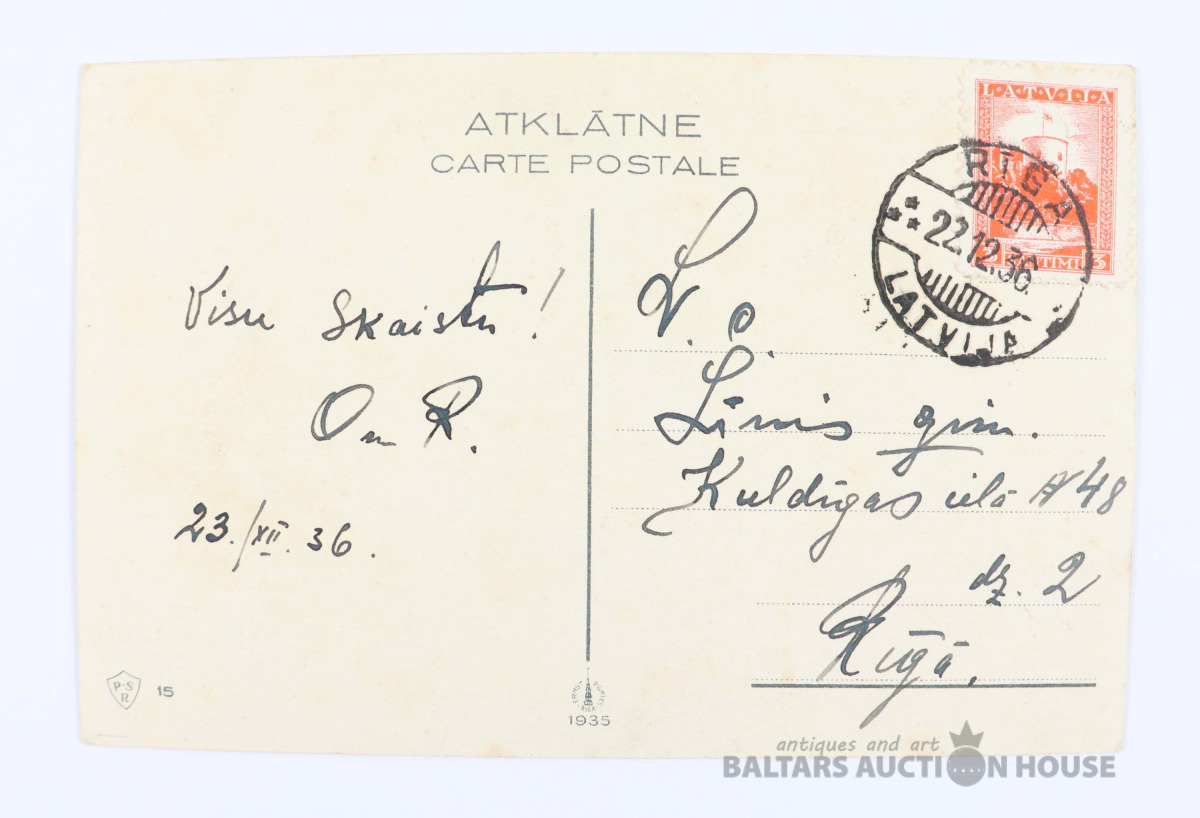 ATKLĀTNE
CARTE POSTALE
LATVIJA
RĪGA
22.12.36.
LATVIJA
Visu skaistu!
Om R.
23./XII. 36.
L. c.
Līnis gim.
Kuldīgas ielā № 48
dz. 2
Rīgā.
P·S
R
15
RIGA
1935
antiques and art
BALTARS AUCTION HOUSE